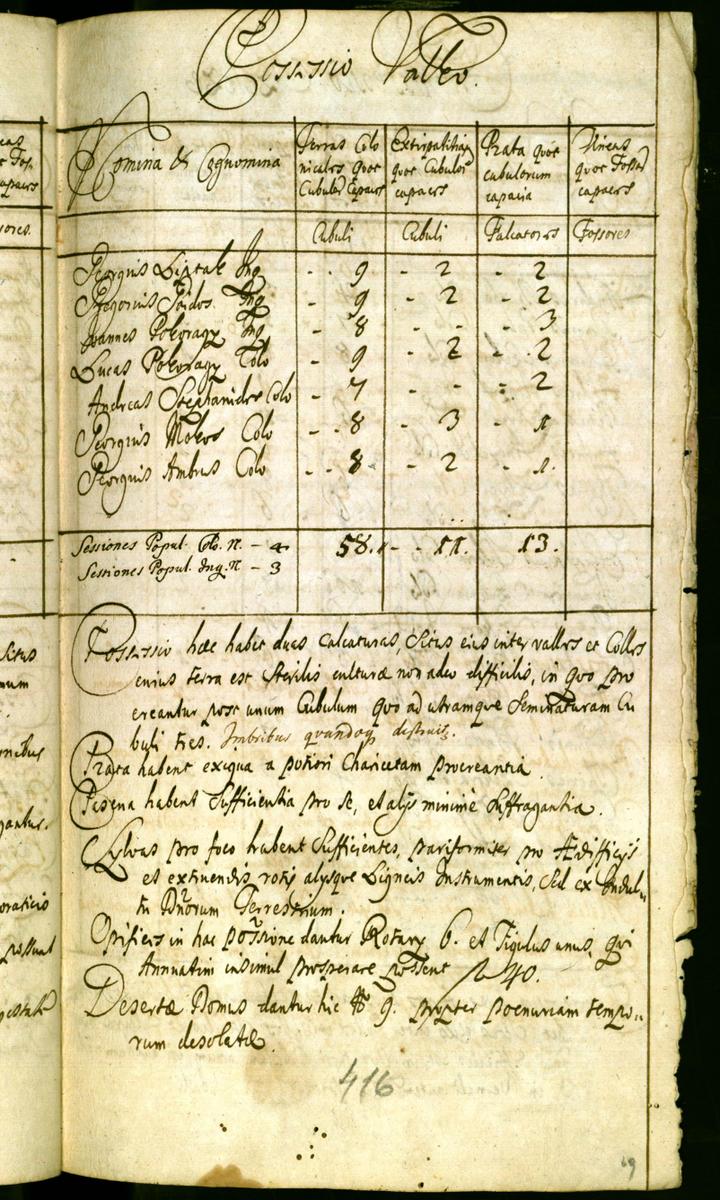 Possessio Valko.
Nomina & Cognomina
Terras Colo
nicales quot
Cubulor Capaces
Extirpatitias
quot Cubulor
capaces
Prata quot
cubulorum
capacia
Vineas
quot Fossor
capaces
Cubuli Cubuli Falcatores Fossores
Georgius Inq - - 9 - 2 - 2
Gregorius Inq - 9 - 2 - 2
Joannes Pokoragy Inq - 8 - - 3
Lucas Pokoragy Colo - 9 - 2 - 2
Andreas Stephanides Colo - 7 - - - 2
Georgius Mokos Colo - - 8 - 3 - 1
Georgius Ambrus Colo - - 8 - 2 - 1.
Sessiones Popul. Colo. N. - 4 58. - - 11. 13.
Sessiones Popul. Inq. N - 3
Possessio haec habet duas calcaturas, Situs eius inter valles et Colles
cuius terra est sterilis culturae non adeo difficilis, in quo pro
creantur post unum Cubulum quo ad utramque Seminaturam Cu
buli tres. Imbribus quandoq destruit.
Prata habent exiqua a potiori Charicetam procreantia.
Pascua habent Sufficientia pro se, et alijs minime Suffragantia.
Sylvas pro foco habent Sufficientes, pariformiter pro Aedifficijs
et extruendis rotis alijsque Ligneis Instrumentis, Sed ex Indul-
tu Dnorum Terrestrium.
Opifices in hac Possione dantur Rotary 6. et Figulus unus, qui
Annuatim insimul prosperare possent 40.
Desertae Domus dantur hic 9. propter poenuriam tempo-
rum desolatae.
416